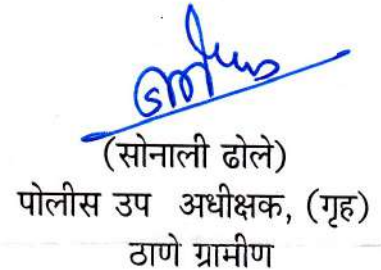 (सोनाली ढोले)
पोलीस उप अधीक्षक, (गृह)
ठाणे ग्रामीण